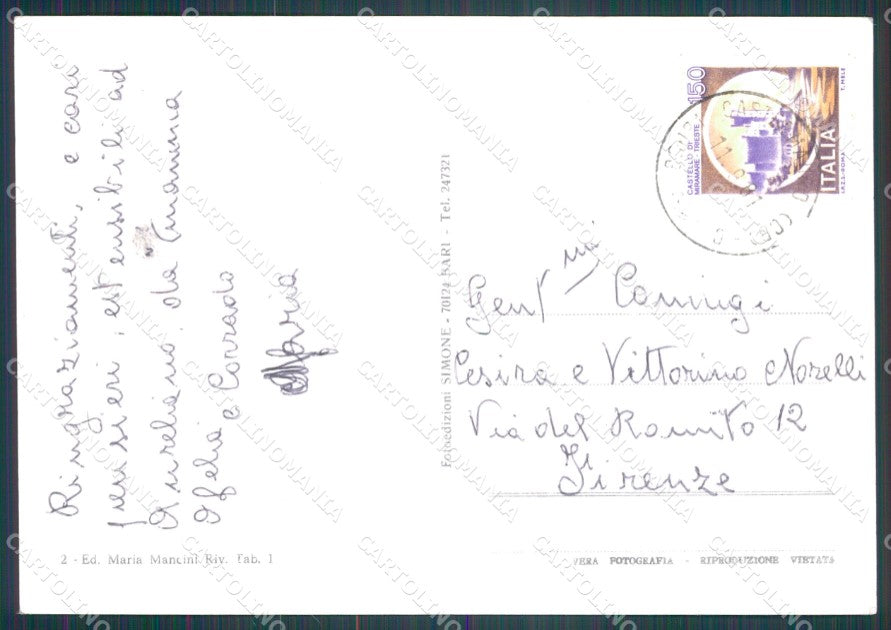 Ringraziamenti, e cari
pensieri, estensibili ad
Aureliano, da mamma
Ofelia e Corrado
Maria
2 - Ed. Maria Mancini Riv. Tab. 1
Fotoedizioni SIMONE - 70124 BARI - Tel. 247321
150
CASTELLO DI
MIRAMARE - TRIESTE
ITALIA
I.P.Z.S. - ROMA
T. MELE
Gent.mi Coniugi
Cesira e Vittorino Norelli
Via del Romito 12
Firenze
VERA FOTOGRAFIA - RIPRODUZIONE VIETATA
CARTOLINOMANIA